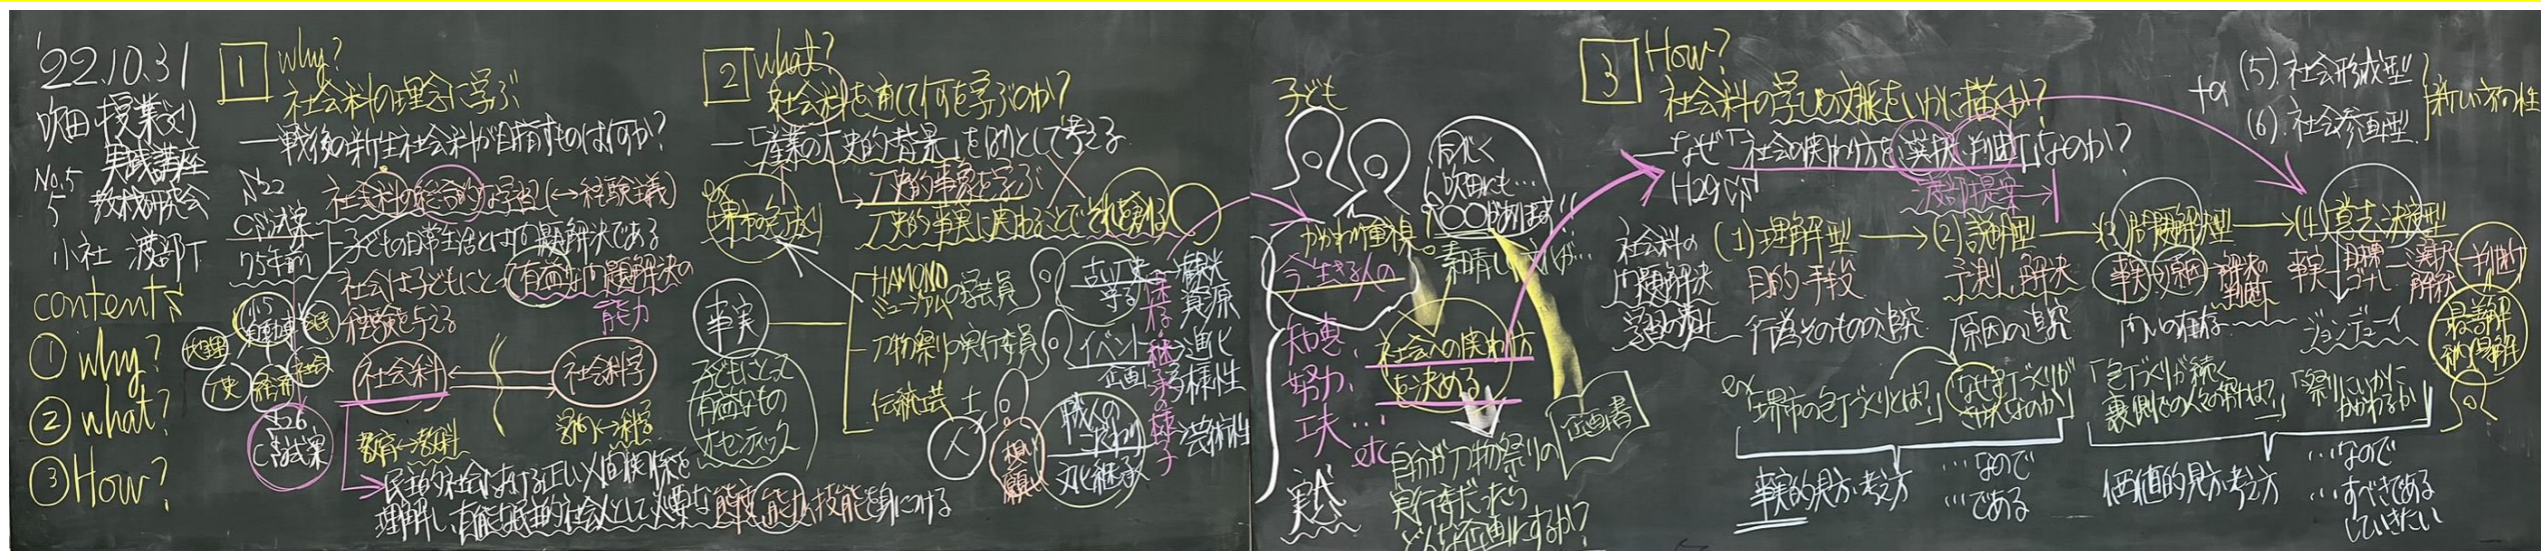 '22.10.31
吹田授業づくり
実践講座
No.5
教材研究会
小社 渡部T
contents
① why?
② what?
③ How?
1 why?
社会科の理念に学ぶ
―戦後の新生社会科が目指すものは何か?
S22
CS試案
75年前
社会科の総合的な学習(↔経験主義)
子どもの日常生活とは問題解決である
社会は子どもにとって有益な問題解決の
経験を与える
能力
地理
歴史
経済
社会
S26
CS試案
社会科
社会科学
教育↔教科
学問↔科学
民主的社会における正しい人間関係を
理解し、有能な民主的社会人として必要な態度、能力、技能を身につける
2 what?
社会科を通して何を学ぶのか?
―「産業の歴史的背景」を例として考える
歴史的事実を学ぶ
歴史的事実に関わることで
ex
堺市の包丁づくり
事実
子どもにとって
有益なもの
オーセンティック
HAMONO
ミュージアムの学芸員
刃物祭りの実行委員
伝統工芸士
人
想い
願い
歴史
守る
イベント
企画
職人の
こだわり
文化継承
観光
資源
進化
多様性
芸術性
子ども
同じく
吹田にも…
○○があります!!
かかわり重視
素晴しい
今、生きる人の
知恵
努力
工夫…
etc
社会への関わり方
を決める
企画書
自分が刃物祭りの
実行委だったら
どんな企画にするか?
3 How?
社会科の学びの文脈をいかに描くか?
―なぜ「社会の関わり方を選択・判断」なのか?
H29CS
渡部提案
+α
(5).社会形成型
(6).社会参画型
新しい方向性
社会科の
問題解決
学習の類型
(1)理解型
目的・手段
行為そのものの追究
(2)説明型
予測し、解決
原因の追究
(3)問題解決型
事実
原因
問いの
(4)意思決定型
事実
目標
選択
判断
ジョン・デューイ
最善解
納得解
ex「堺市の包丁づくりとは?」
なぜ包丁づくりが
さかんなのか
「包丁づくりが続く
裏側での人々の努力は?」
「祭りにいかに
かかわるか」
事実的見方・考え方
…なので
…である
価値的見方・考え方
…なので
…すべきである
していきたい